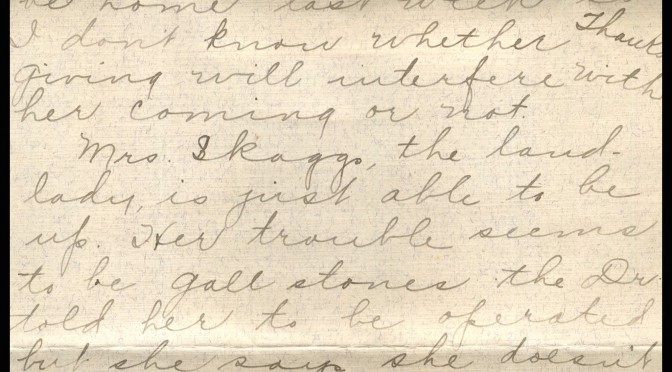 be home last week
I dont know whether Thanks
giving will interfere with
her coming or not.
Mrs. Skaggs, the land-
lady, is just able to be
up. Her trouble seems
to be gall stones the Dr
told her to be operated
but she says she doesn't